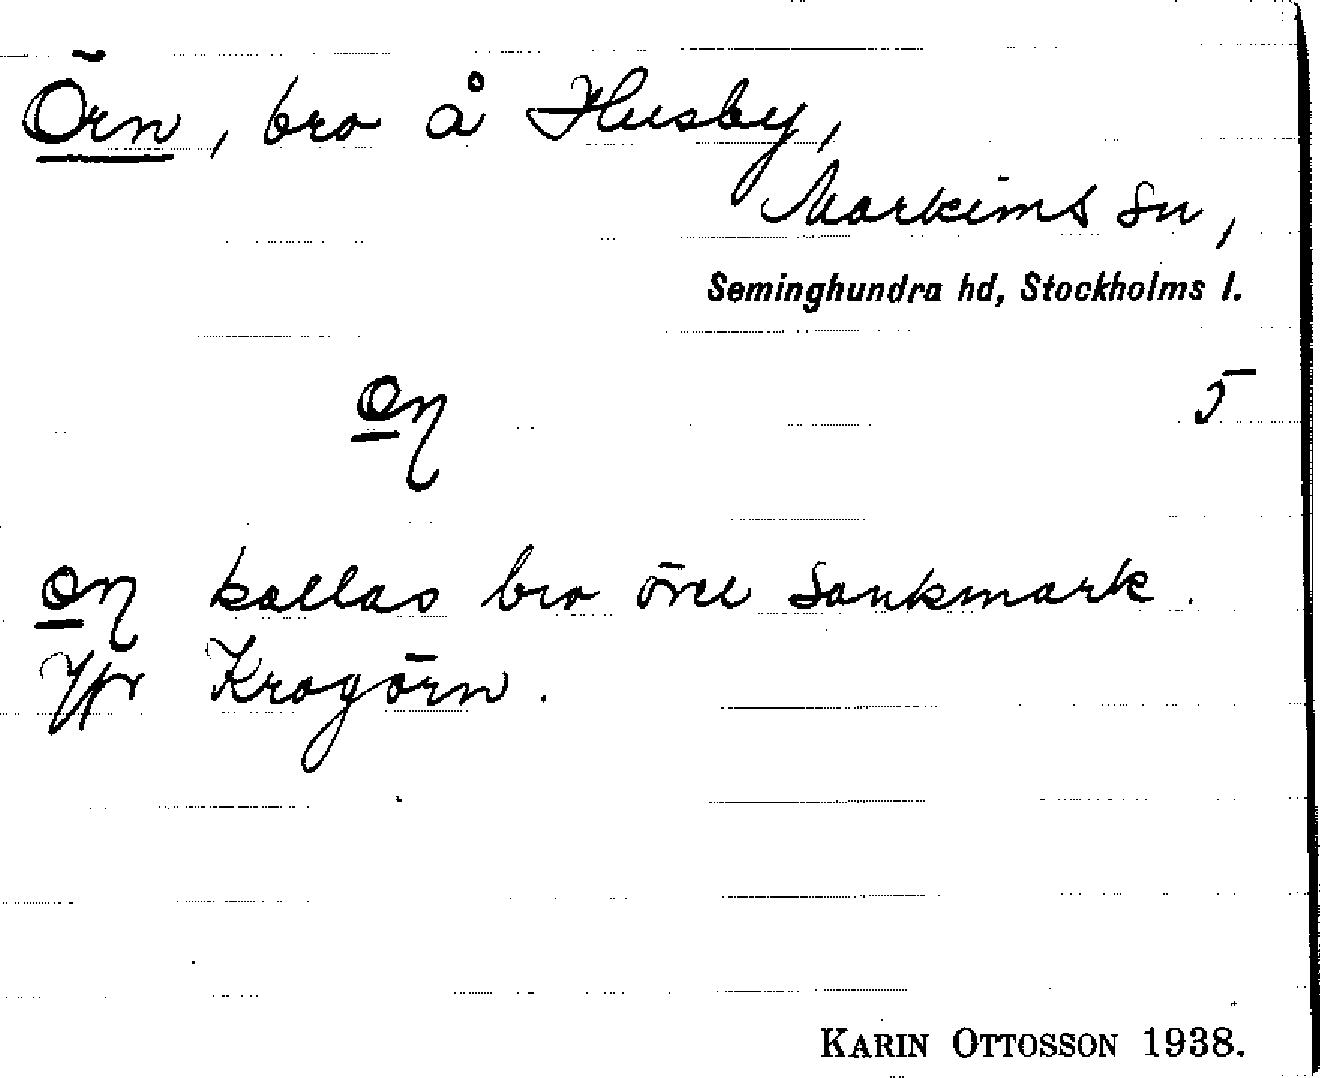 Örn, bro å Husby,
Markims sn,
Seminghundra hd, Stockholms l.
5
kallas bro över sankmark.
Jfr Krogörn.
KARIN OTTOSSON 1938.